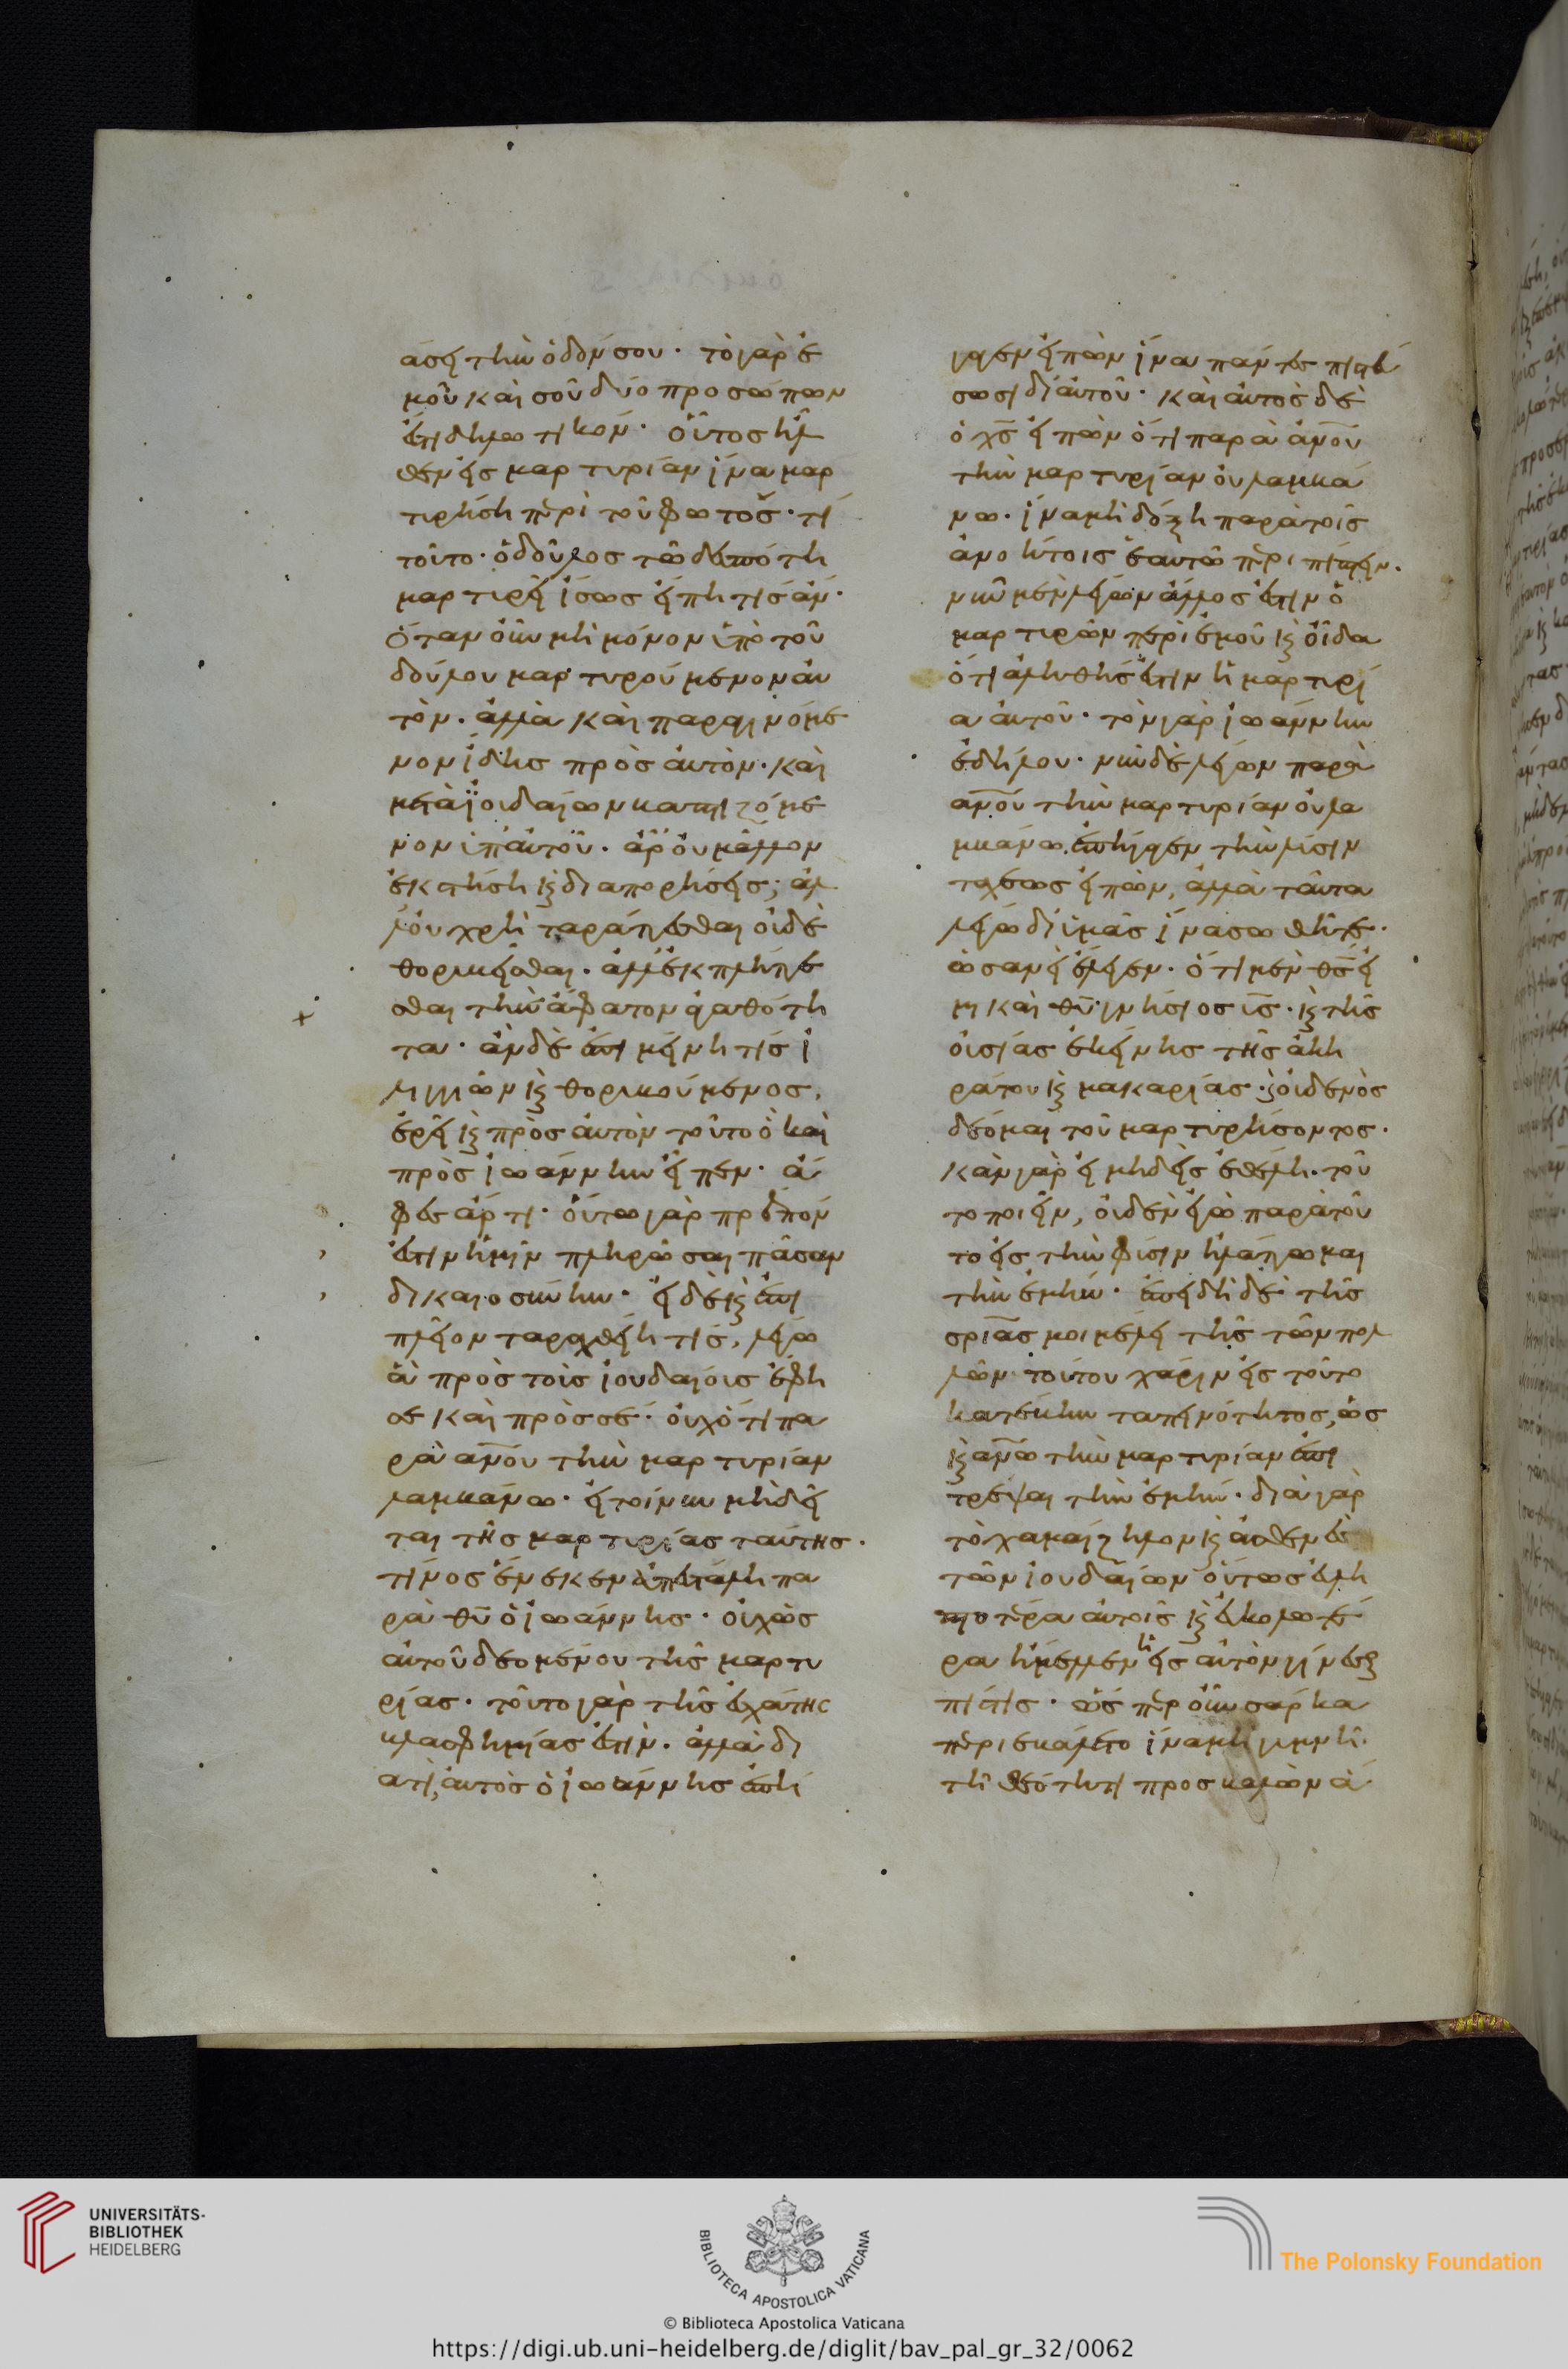 άσει τὴν ὁδόν σου· τὸ γὰρ ἐ
μοῦ καὶ σοῦ δύο προσώπων
ἐστὶ δηλωτικόν· οὗτος ἦλ
θεν εἰς μαρτυρίαν ἵνα μαρ
τυρήση περὶ τοῦ φωτός· τί
τοῦτο· ὁ δοῦλος τῶ δεσπότη
μαρτυρεῖ ἴσως εἴπη τίς ἄν·
ὅταν οὖν μὴ μόνον ὑπὸ τοῦ
δούλου μαρτυρούμενον αυ
τὸν· ἀλλὰ καὶ παραγινόμε
νον ἴδης πρὸς αὐτὸν· καὶ
μετὰ ϊουδαίων βαπτιζόμε
νον ὑπ' αὐτοῦ· ἆρ' οὐ μᾶλλον
ἐκστήση καὶ διαπορήσεις; ἀλ
λ' οὐ χρὴ ταράττεσθαι οὐδὲ
θορυβεῖσθαι· ἀλλ' ἐκπλήττε
σθαι τὴν ἄφατον ἀγαθότη
τα· ἂν δὲ ἐπιμένη τίς ἰ
λιγγιῶν καὶ θορυβούμενος,
ἐρεῖ καὶ πρὸς αὐτὸν τοῦτο ὃ καὶ
πρὸς ἰωάννην εἶπεν· ἄ
φες ἄρτι· οὕτω γὰρ πρέπον
ἐστὶν ἡμῖν πληρῶσαι πᾶσαν
δικαιοσύνην· εἰ δὲ καὶ ἐπὶ
πλεῖον ταραχθείη τίς, λέγω
ἃ πρὸς τοὺς ἰουδαίους ἔφη
σε καὶ πρὸς σέ· οὐχ ὅτι πα
ρὰ ἀνου τὴν μαρτυρίαν
λαμβάνω· εἰ τοίνυν μὴ δεῖ
ται τῆς μαρτυρίας ταύτης·
τίνος ἕνεκεν ἀπεστάλη πα
ρὰ θυ ὁ ἰωάννης· οὐχ ὡς
αὐτοῦ δεομένου τῆς μαρτυ
ρίας· τοῦτο γὰρ τῆς ἐσχάτης
βλασφημίας ἐστὶν· ἀλλὰ δι
ατί, αὐτὸς ὁ ἰωάννης ἐπή
γαγεν εἰπὼν ἵνα πάντες πιστεύ
σωσι δι' αὐτοῦ· καὶ αὐτὸς δὲ
ὁ χς εἰπὼν ὅτι παρὰ ἀνου
τὴν μαρτυρίαν οὐ λαμβά
νω· ἵνα μὴ δόξη παρὰ τοῖς
ἀνοήτοις ἑαυτῶ περιπίπτειν·
νῦν μὲν λέγων ἄλλος ἐστὶν ὁ
μαρτυρῶν περὶ ἐμοῦ καὶ οἶδα
ὅτι ἀληθής ἐστιν ἡ μαρτυρί
α αὐτοῦ· τὸν γὰρ ἰωάννην
ἐδήλου· νῦν δὲ λέγων παρὰ
ἀνου τὴν μαρτυρίαν οὐ λα
μβάνω· ἐπήγαγεν τὴν λύσιν
ταχέως εἰπὼν, ἀλλὰ ταῦτα
λέγω δι' ὑμᾶς ἵνα σωθῆτε·
ὡσανεὶ ἔλεγεν· ὅτι μὲν θς εἰ
μι καὶ θυ γνήσιος υς· καὶ τῆς
οὐσίας ἐκείνης τῆς ἀκη
ράτου καὶ μακαρίας· καὶ οὐδενὸς
δέομαι τοῦ μαρτυρήσοντος·
κἂν γὰρ εἰ μηδεὶς ἐθέλη· τοῦ
το ποιεῖν, οὐδὲν ἐγὼ παρὰ τοῦ
το εἰς τὴν φύσιν ἠλάττωμαι
τὴν ἐμήν· ἐπειδὴ δὲ τῆς
σριας μοι μέλει τῆς τῶν πολ
λῶν· τούτου χάριν εἰς τοῦτο
κατέβην ταπεινότητος, ὡς
καὶ ἀνω τὴν μαρτυρίαν ἐπι
τρέψαι τὴν ἐμήν· διὰ γὰρ
τὸ χαμαίζηλον καὶ ἀσθενὲς
τῶν ἰουδαίων οὕτως εὐλη
πτοτέρα αὐτοῖς καὶ εὐκολωτέ
ρα ἡ ἔμελλεν ἡ εἰς αὐτὸν γίνεσθαι
πίστις· ὥς περ οὖν σάρκα
περιεβάλετο ἵνα μὴ γυμνῆ
τῆ θεότητι προσβαλὼν ἁ